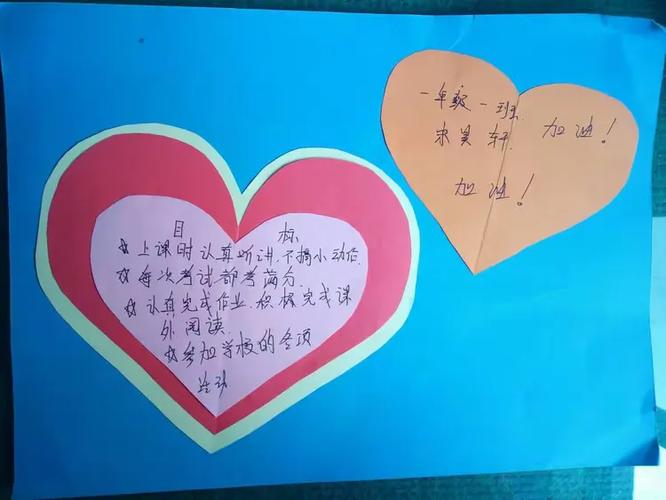 目 标
☆上课时认真听讲.不搞小动作.
☆每次考试都考满分.
☆认真完成作业.积极完成课
外阅读.
☆参加学校的各项
活动
一年级一班
宋昊轩 加油!
加油!